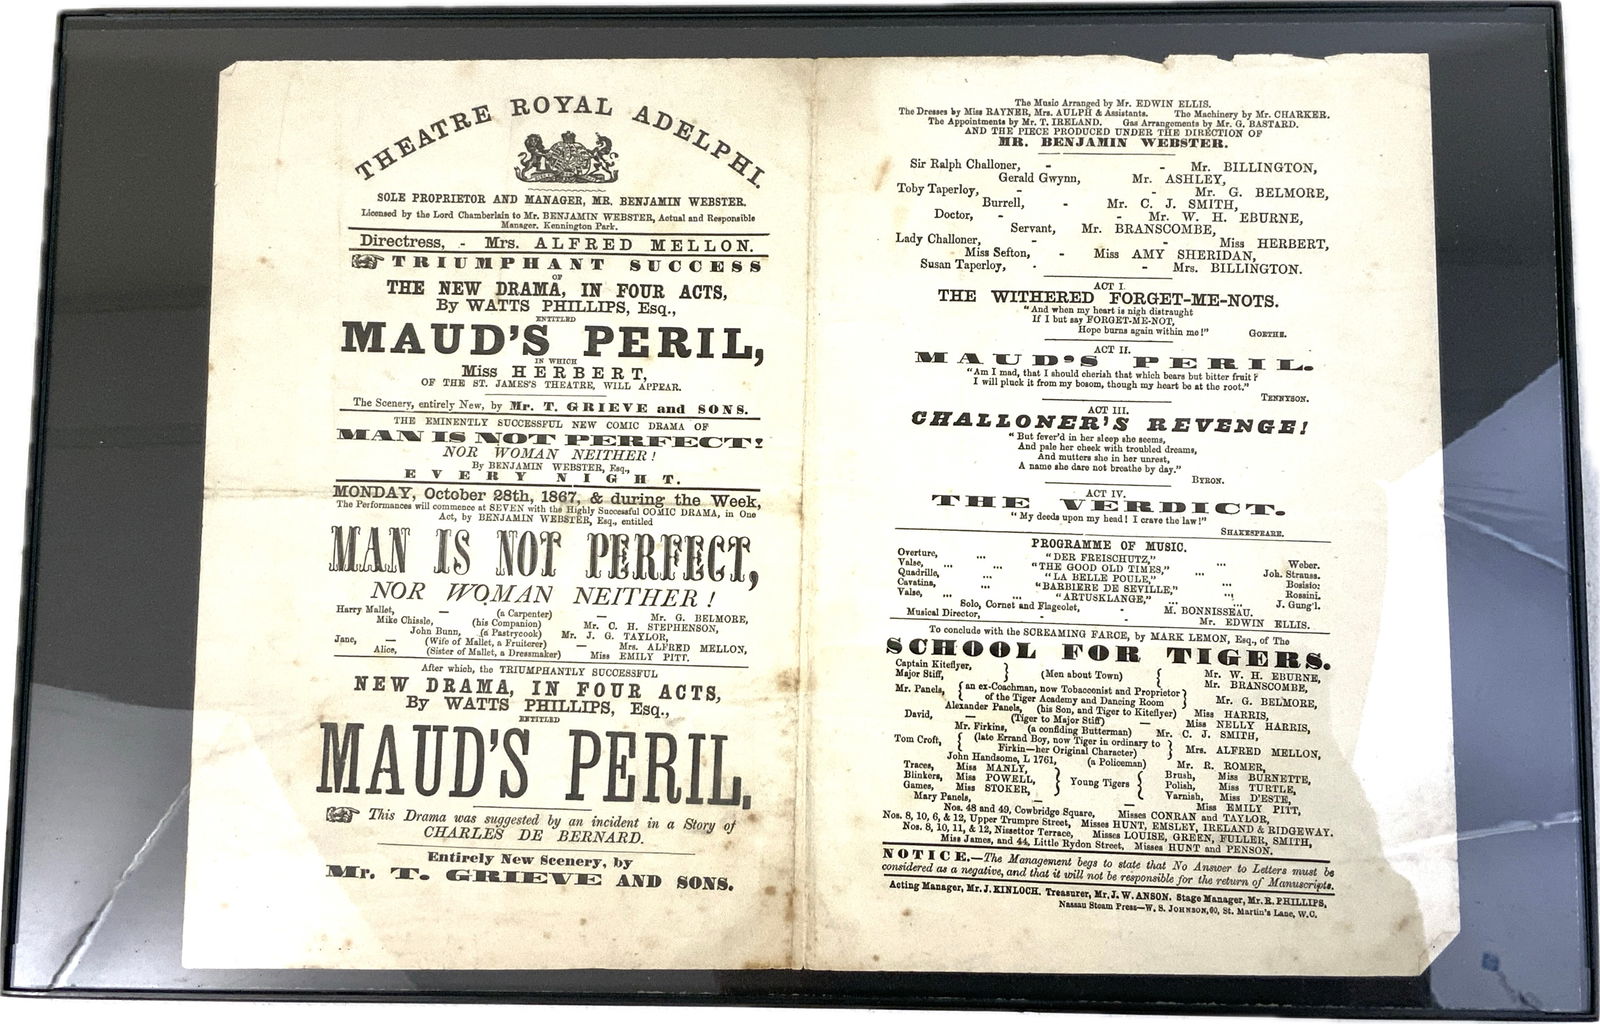 THEATRE ROYAL ADELPHI.
SOLE PROPRIETOR AND MANAGER, MR. BENJAMIN WEBSTER.
Licensed by the Lord Chamberlain to Mr. BENJAMIN WEBSTER, Actual and Responsible
Manager. Kennington Park.
Directress, - Mrs. ALFRED MELLON.
TRIUMPHANT SUCCESS
OF
THE NEW DRAMA, IN FOUR ACTS,
By WATTS PHILLIPS, Esq.,
ENTITLED
MAUD'S PERIL,
IN WHICH
Miss HERBERT,
OF THE ST. JAMES'S THEATRE, WILL APPEAR.
The Scenery, entirely New, by Mr. T. GRIEVE and SONS.
THE EMINENTLY SUCCESSFUL NEW COMIC DRAMA OF
MAN IS NOT PERFECT!
NOR WOMAN NEITHER!
By BENJAMIN WEBSTER, Esq.,
EVERY NIGHT.
MONDAY, October 28th, 1867, & during the Week,
The Performances will commence at SEVEN with the Highly Successful COMIC DRAMA, in One
Act, by BENJAMIN WEBSTER, Esq., entitled
MAN IS NOT PERFECT,
NOR WOMAN NEITHER!
Harry Mallet, — (a Carpenter) — Mr. G. BELMORE,
Mike Chissle, (his Companion) Mr. C. H. STEPHENSON,
John Bunn, (a Pastrycook) Mr. J. G. TAYLOR,
Jane, — (Wife of Mallet, a Fruiterer) — Mrs. ALFRED MELLON,
Alice, (Sister of Mallet, a Dressmaker) Miss EMILY PITT.
After which, the TRIUMPHANTLY SUCCESSFUL
NEW DRAMA, IN FOUR ACTS,
By WATTS PHILLIPS, Esq.,
ENTITLED
MAUD'S PERIL.
This Drama was suggested by an incident in a Story of
CHARLES DE BERNARD.
Entirely New Scenery, by
Mr. T. GRIEVE AND SONS.
The Music Arranged by Mr. EDWIN ELLIS.
The Dresses by Miss RAYNER, Mrs. AULPH & Assistants. The Machinery by Mr. CHARKER.
The Appointments by Mr. T. IRELAND. Gas Arrangements by Mr. G. BASTARD.
AND THE PIECE PRODUCED UNDER THE DIRECTION OF
MR. BENJAMIN WEBSTER.
Sir Ralph Challoner, - - Mr. BILLINGTON,
Gerald Gwynn, Mr. ASHLEY,
Toby Taperloy, - - Mr. G. BELMORE,
Burrell, - Mr. C. J. SMITH,
Doctor, - - Mr. W. H. EBURNE,
Servant, Mr. BRANSCOMBE,
Lady Challoner, - - Miss HERBERT,
Miss Sefton, - Miss AMY SHERIDAN,
Susan Taperloy, . - Mrs. BILLINGTON.
ACT I.
THE WITHERED FORGET-ME-NOTS.
"And when my heart is nigh distraught
If I but say FORGET-ME-NOT,
Hope burns again within me!" GOETHE.
ACT II.
MAUD'S PERIL.
"Am I mad, that I should cherish that which bears but bitter fruit?
I will pluck it from my bosom, though my heart be at the root."
TENNYSON.
ACT III.
CHALLONER'S REVENGE!
"But fever'd in her sleep she seems,
And pale her cheek with troubled dreams,
And mutters she in her unrest,
A name she dare not breathe by day."
BYRON.
ACT IV.
THE VERDICT.
"My deeds upon my head! I crave the law!"
SHAKESPEARE.
PROGRAMME OF MUSIC.
Overture, ... "DER FREISCHUTZ," ... Weber.
Valse, ... "THE GOOD OLD TIMES," Joh. Strauss.
Quadrille, ... "LA BELLE POULE," ... Bosisio:
Cavatina, "BARBIERE DE SEVILLE," Rossini.
Valse, ... "ARTUSKLANGE," ... J. Gung'l.
Solo, Cornet and Flageolet, - M. BONNISSEAU.
Musical Director, - Mr. EDWIN ELLIS.
To conclude with the SCREAMING FARCE, by MARK LEMON, Esq., of The
SCHOOL FOR TIGERS.
Captain Kiteflyer, } (Men about Town) { Mr. W. H. EBURNE,
Major Stiff, Mr. BRANSCOMBE,
Mr. Panels, { an ex-Coachman, now Tobacconist and Proprietor
of the Tiger Academy and Dancing Room } Mr. G. BELMORE,
Alexander Panels, (his Son, and Tiger to Kiteflyer) Miss HARRIS,
David, — (Tiger to Major Stiff) — Miss NELLY HARRIS,
Mr. Firkins, (a confiding Butterman) Mr. C. J. SMITH,
Tom Croft, { (late Errand Boy, now Tiger in ordinary to
Firkin—her Original Character) } Mrs. ALFRED MELLON,
John Handsome, L 1761, (a Policeman) Mr. R. ROMER,
Traces, Miss MANLY, Brush, Miss BURNETTE,
Blinkers, Miss POWELL, } Young Tigers { Polish, Miss TURTLE,
Games, Miss STOKER, Varnish, Miss D'ESTE,
Mary Panels, — — Miss EMILY PITT,
Nos. 48 and 49, Cowbridge Square, Misses CONRAN and TAYLOR,
Nos. 8, 10, 6, & 12, Upper Trumpre Street, Misses HUNT, EMSLEY, IRELAND & RIDGEWAY.
Nos. 8, 10, 11, & 12, Nissettor Terrace, Misses LOUISE, GREEN, FULLER, SMITH,
Miss James, and 44, Little Rydon Street, Misses HUNT and PENSON.
NOTICE.—The Management begs to state that No Answer to Letters must be
considered as a negative, and that it will not be responsible for the return of Manuscripts.
Acting Manager, Mr. J. KINLOCH. Treasurer, Mr. J. W. ANSON. Stage Manager, Mr. R. PHILLIPS,
Nassau Steam Press—W. S. JOHNSON, 60, St. Martin's Lane, W.C.